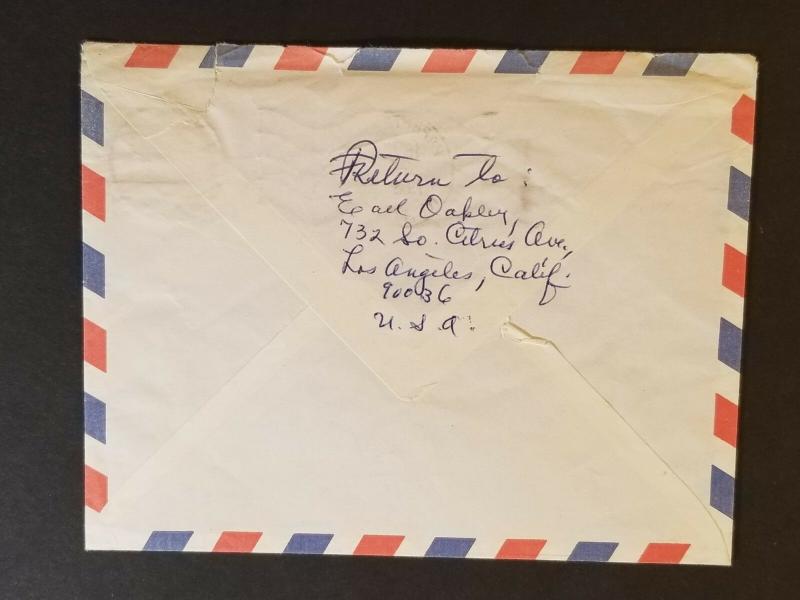 Return to:
Earl Oakley,
732 So. Citrus Ave.,
Los Angeles, Calif.
90036
U.S.A.